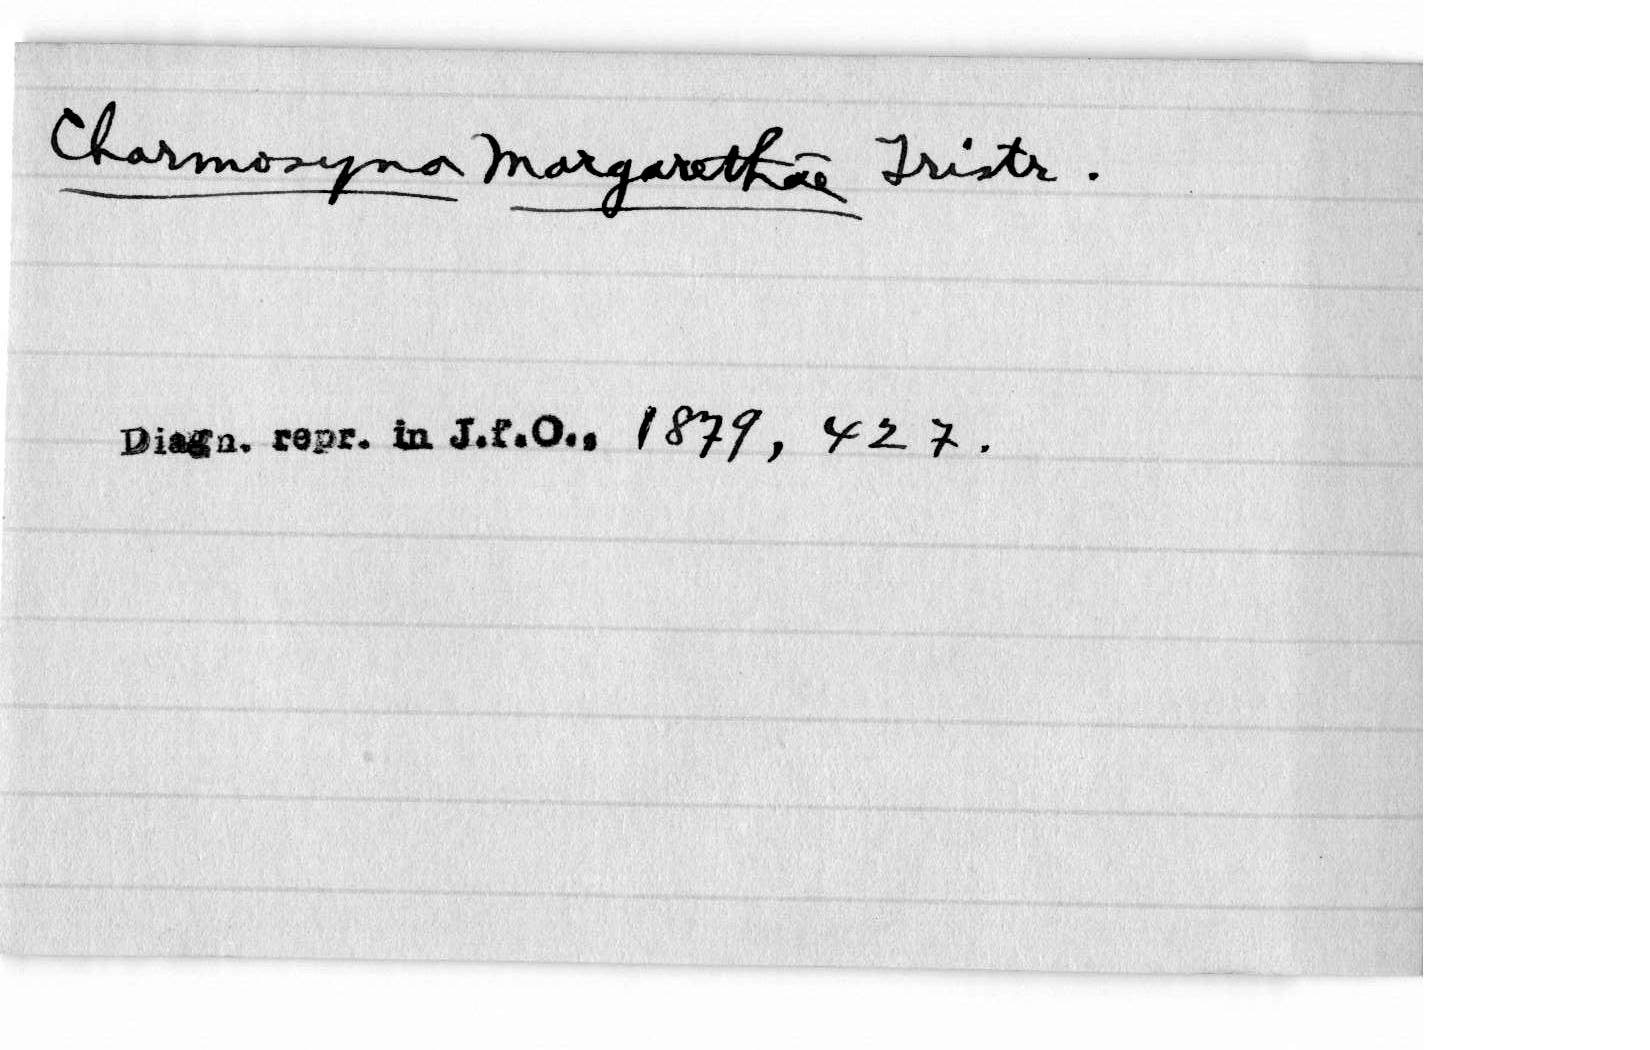 Charmosyna Margarethae Tristr.
Diagn. repr. in J.f.O., 1879, 427.